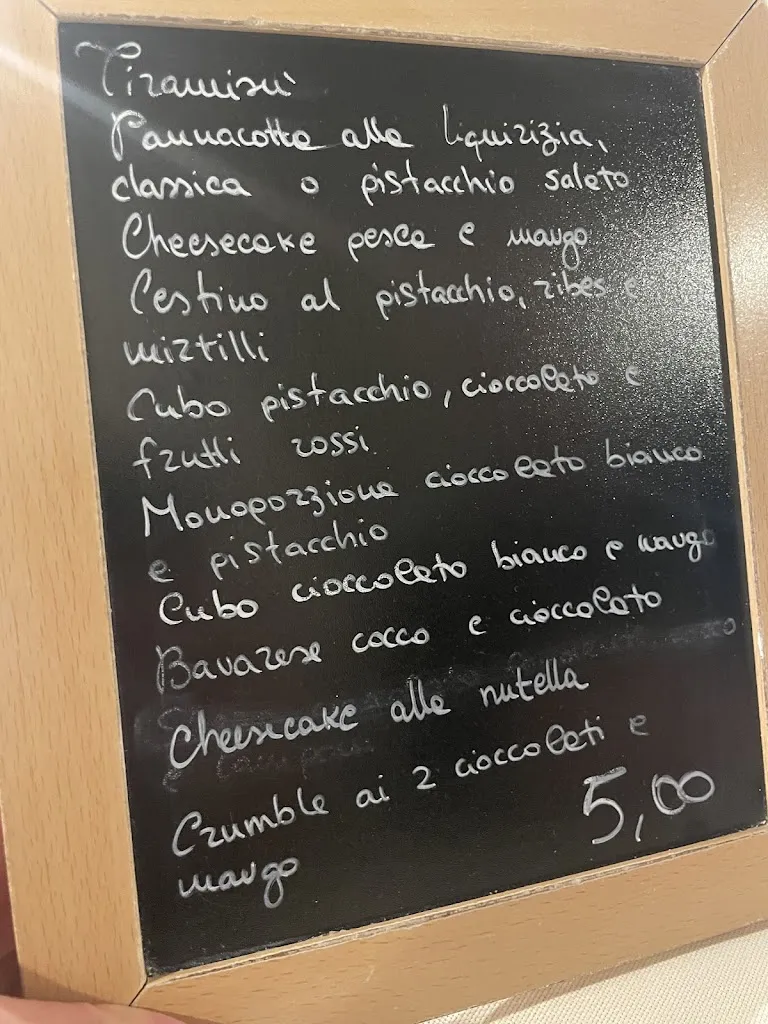 Tiramisù
Pannacotta alla liquirizia,
classica o pistacchio salato
Cheesecake pesca e mango
Cestino al pistacchio, ribes e
mirtilli
Cubo pistacchio, cioccolato e
frutti rossi
Monoporzione cioccolato bianco
e pistacchio
Cubo cioccolato bianco e mango
Bavarese cocco e cioccolato
Cheesecake alla nutella
Crumble ai 2 cioccolati e
mango
5,00